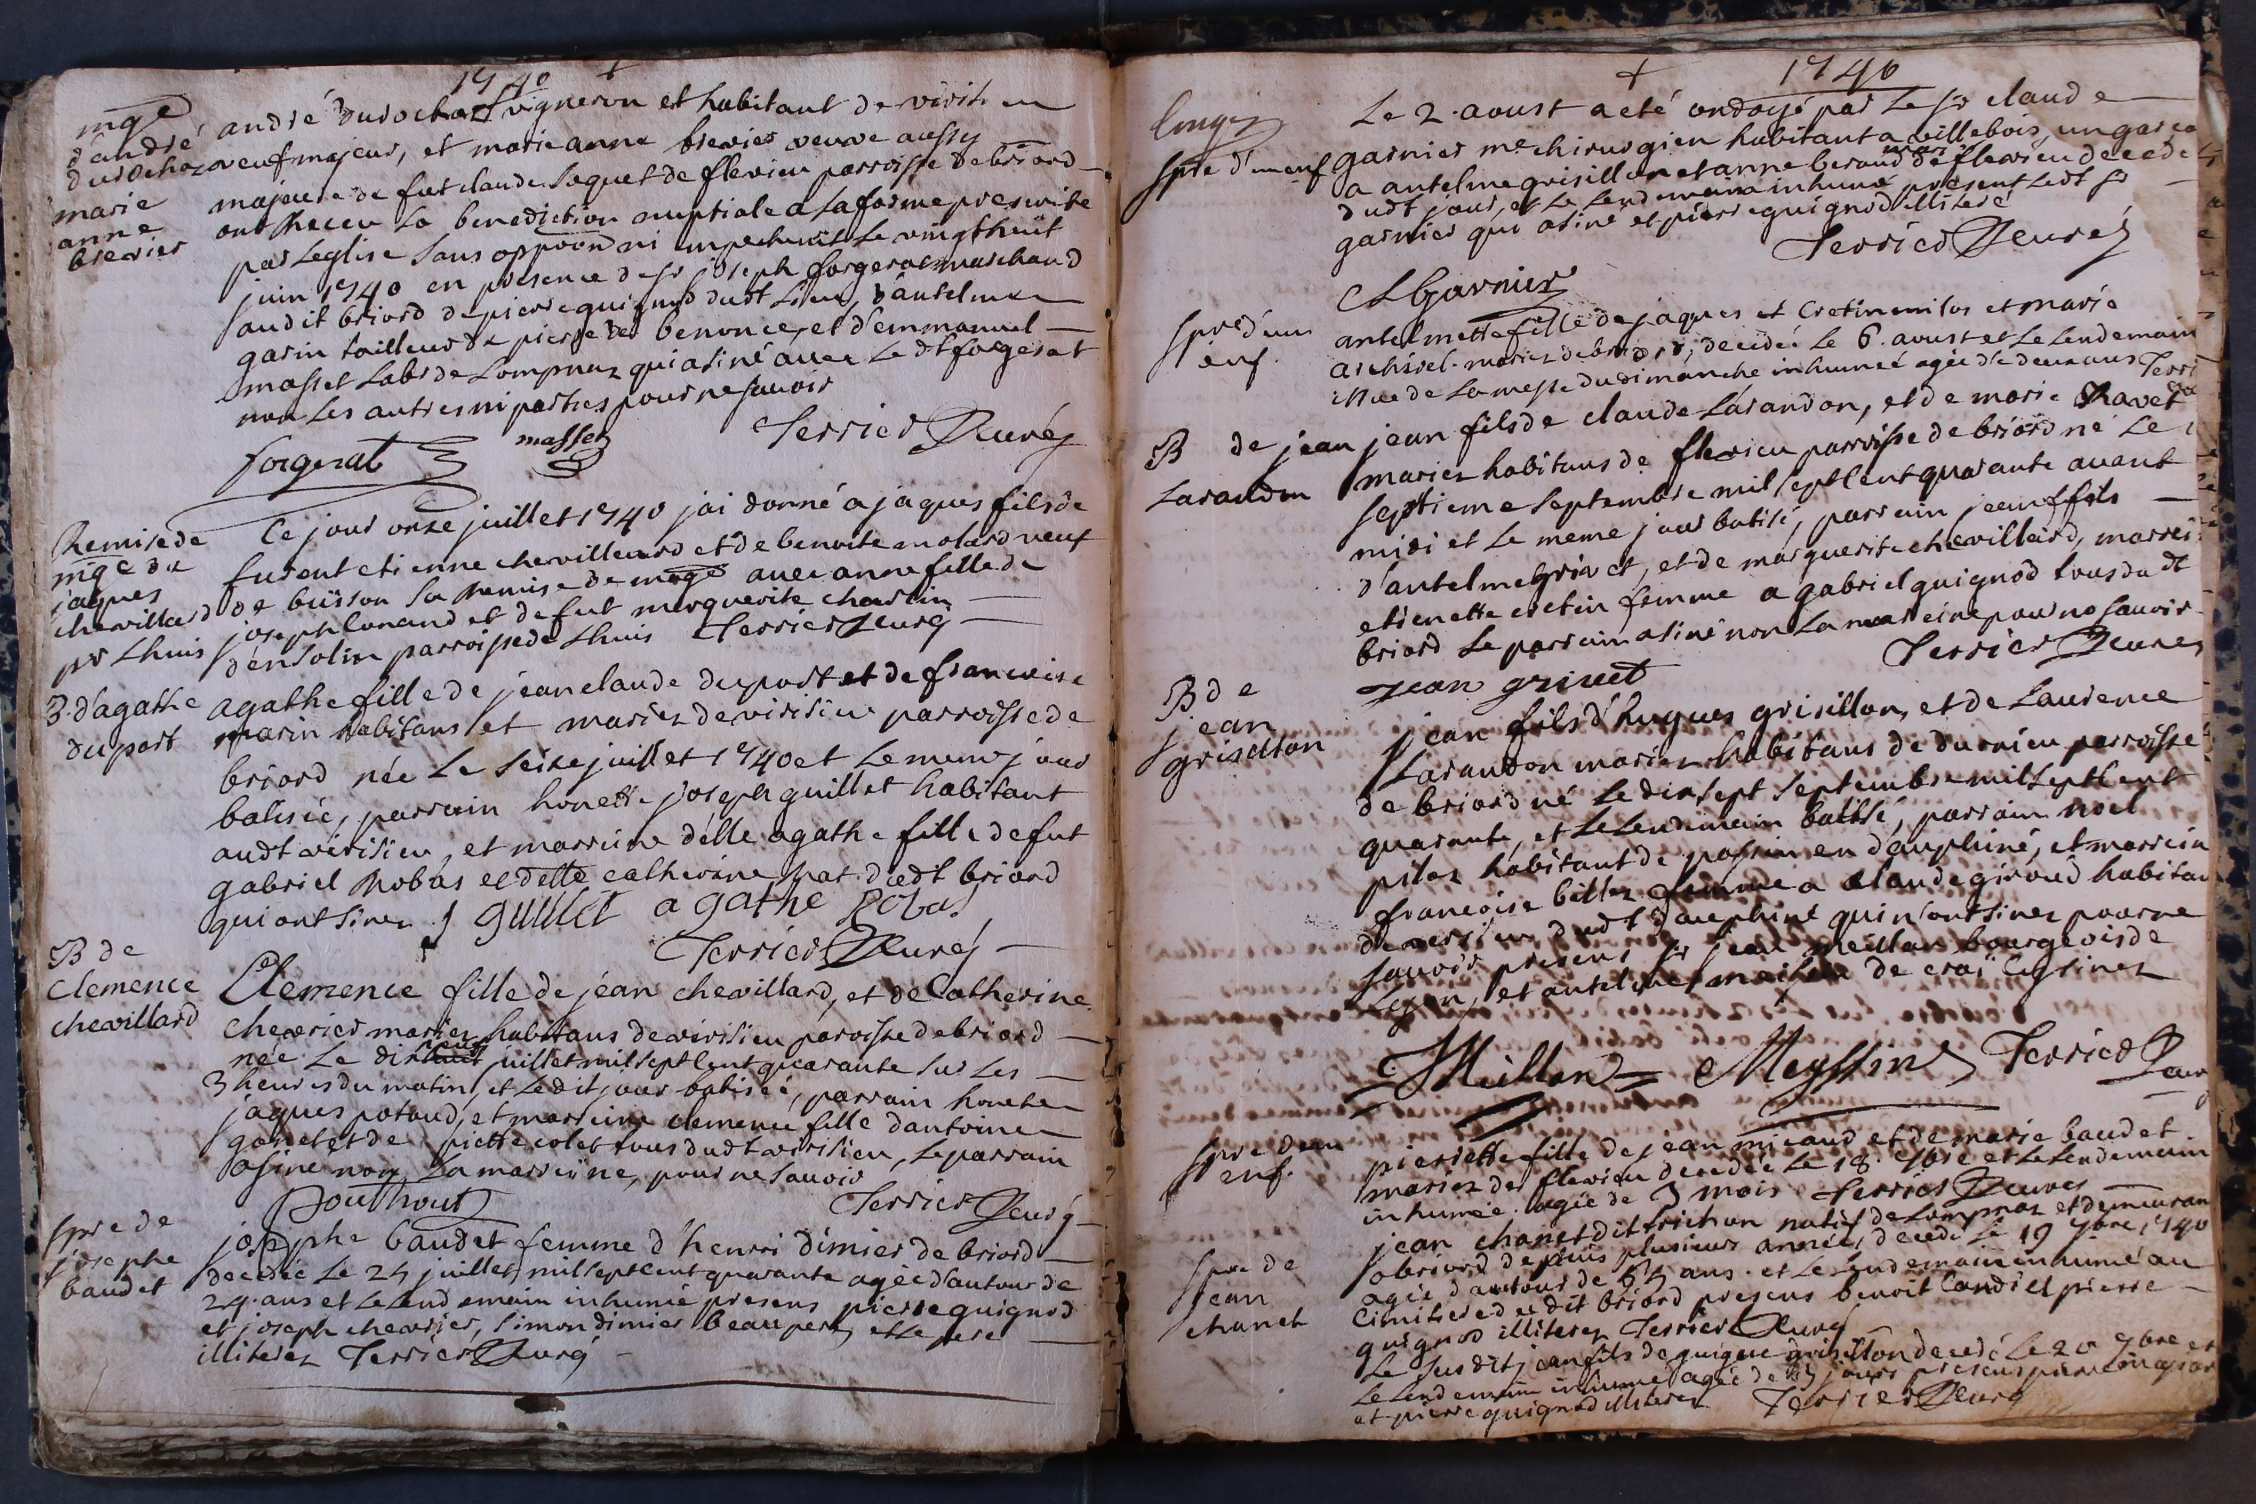 1740 +
mge
d'andré
durochaz
marie
anne
brevier
andré durochat vigneron et habitant de
veuf majeur, et marie anne brevier veuve aussy
majeure de fut claude soquet de flevieu parroisse de briord
ont receu la benediction nuptiale a la forme prescrite
par leglise sans oppoon ni empechent le vingthuit
juin 1740 en presence de sr joseph forgerat marchand
audit briord de pierre quignod dudt lieu, d'antelme
garin tailleur de pierre de benonce, et d'emmanuel
masset labr de lompnaz qui a siné avec le dt forgerat
non les autres ni parties pour ne savoir
forgerat masset Terrier curé
Remise de
mge de
jaques
chevillard
pr Lhuis
Ce jour onze juillet 1740 jai donné a jaques fils de
furent etienne chevilleard et de benoite molard veuf
de buisson sa remise de mage avec anne fille de
joseph Conand et de fut marguerite charlin
d'ensolin parroisse de Lhuis Terrier curé
B. d'agathe
duport
agathe fille de jean claude duport et de francoise
marin habitans et mariez de virisieu parroisse de
briord née le seize juillet 1740 et le meme jour
batisée, parrain honette joseph guillet habitant
audt virisieu, et marreine d'elle agathe fille de fut
gabriel robas et delle catherine pat dudt briord
qui ont sinez J guillet agathe Robas
Terrier curé
B de
Clemence
chevillard
Clemence fille de jéan chevillard, et de Catherine
chevrier mariez habitans de virisieu paroisse de briord
née le dix juillet mil sept cent quarante sur les
3 heures du matin, et ledit jour batisée, parrain honete
jaques potoud, et marreine clemence fille d'antoine
et de piette colet tous dudt virisieu, le parrain
a siné non la marreine, pour ne savoir
Pouthout Terrier curé
Spre de
josephe
baudet
josephe baudet femme d'henri dimier de briord
decedée le 25 juillet mil sept cent quarante agée d'autour de
29 ans et le lendemain inhumée presens pierre quignod
et joseph chevrier, simon dimier beau pere, et le pere
illiterez Terrier curé
+ 1740
Spre d'un enf
Le 2. aoust a eté ondoyé par le sr claude
garnier me chirurgien habitant a villebois, un garcon
a antelme grisillon et anne beraud mariez de flevieu decedé
dudt jour, et le lendemain inhumé present ledt sr
garnier qui a siné et pierre quignod illiteré
Terrier curé
Cl Garnier
Spre d'un
enf.
antelmette fille de jaques et Cretin et marie
mariez de briord, decedée le 6. aoust et le lendemain
issue de la messe du dimanche inhumée agée de deux ans
B de jean
Larandon
jean fils de claude Larandon, et de marie Ravet
mariez habitans de flevieu parroisse de briord né le
septieme septembre mil sept cent quarante avant
midi et le meme jour batisé, parrain jean fils
d'antelme grinet, et de marguerite chevillard, marreine
etienette cretin femme a gabriel quignod tous du dt
briord le parrain a siné non la marreine pour ne savoir
Terrier curé
jean grinet
B de
jean
grisillon
jean fils d'hugues grisillon, et de Laurence
Larandon mariez habitans de durnieu parroisse
de briord né le dixsept septembre mil sept cent
quarante, et le lendemain batisé, parrain noel
piloz habitant de en dauphiné, et marreine
francoise billez femme a claude giroud habitant
de dudt dauphiné qui n'ont sinez pour ne
savoir presens sr jean meillan bourgeois de
Lyon, et antelme de crai sinez
Meillan Meyssin Terrier curé
Spre d'un
enf.
pierrette fille de jean micaud et de marie baudet
mariez de flevieu decedée le 18. 7bre et le lendemain
inhumée. agée de 3 mois Terrier curé
Spre de
jean
chanet
jean chanet dit frichon natif de Lompnaz et demeurant
a briord depuis plusieurs année, decedé le 19 7bre 1740
agée d'autour de 65 ans. et le lendemain inhumé au
cimitiere de dit briord presens benoit Cond et pierre
quignod illiterez Terrier curé
Le susdit jean fils de guigue grisillon decedé le 20 7bre et
le lendemain inhumé agée de 3 jours presens
et pierre quignod illiterez Terrier curé